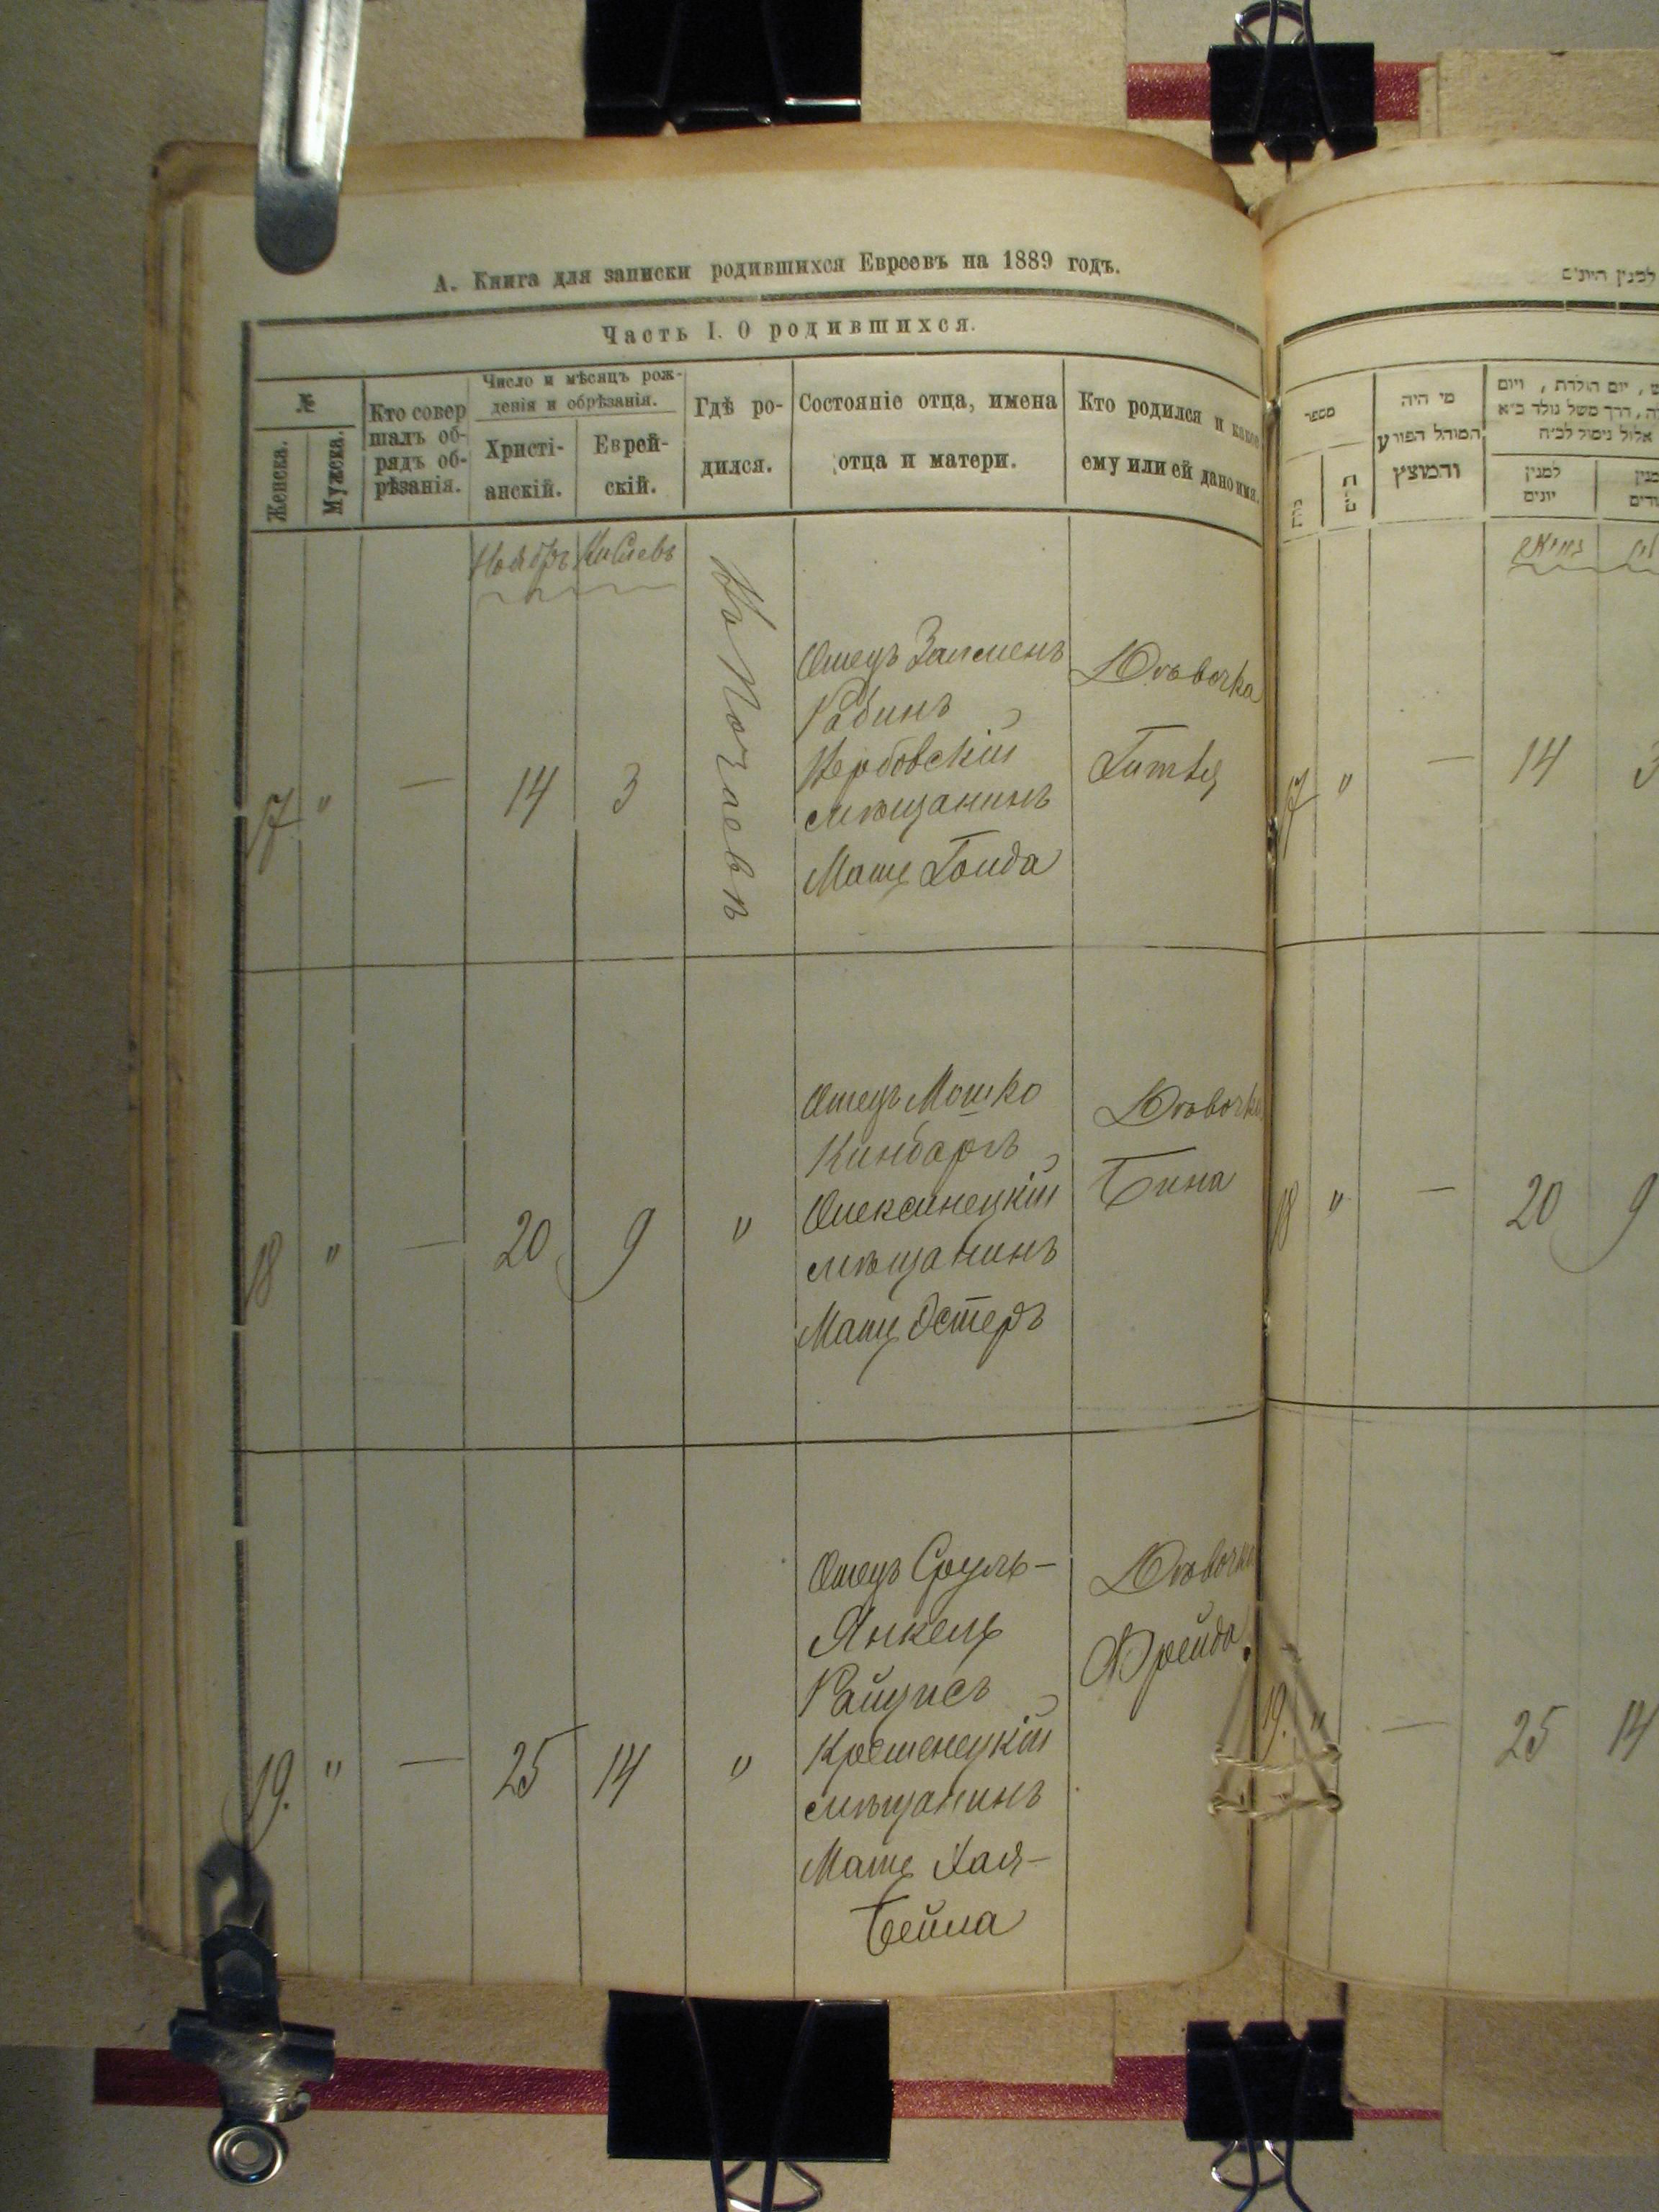 А. Книга для записки родившихся Евреевъ на 1889 годъ.
Часть I. О родившихся.
№
Женска.
Мужска.
Кто совер
шалъ об-
рядъ об-
рѣзанія.
Число и мѣсяцъ рож-
денія и обрѣзанія.
Христі-
анскій.
Еврей-
скій.
Гдѣ ро-
дился.
Состояніе отца, имена
отца и матери.
Кто родился и какое
ему или ей дано имя.
Ноябрь Кислевъ
17 " — 14 3
Въ Почаевѣ
Отецъ Залменъ
Рабинъ
Вербовскій
мѣщанинъ
Мать Голда
Дѣвочка
Гитля
18 " — 20 9 "
Отецъ Мошко
Кинбаргъ
Олексинецкій
мѣщанинъ
Мать Эстеръ
Дѣвочка
Бина
19. " — 25 14 "
Отецъ Сруль-
Янкель
Райцисъ
Кременецкій
мѣщанинъ
Мать Хая-
Бейла
Дѣвочка
Фрейда.
למנין היונים
מספר
מי היה
המוהל הפורע
והמוצץ
יום הולדת , ויום
דרך משל נולד כ״א
אלול נימול לכ״ח
למנין
יונים
17 " — 14 3
18 " — 20 9
19. " — 25 14